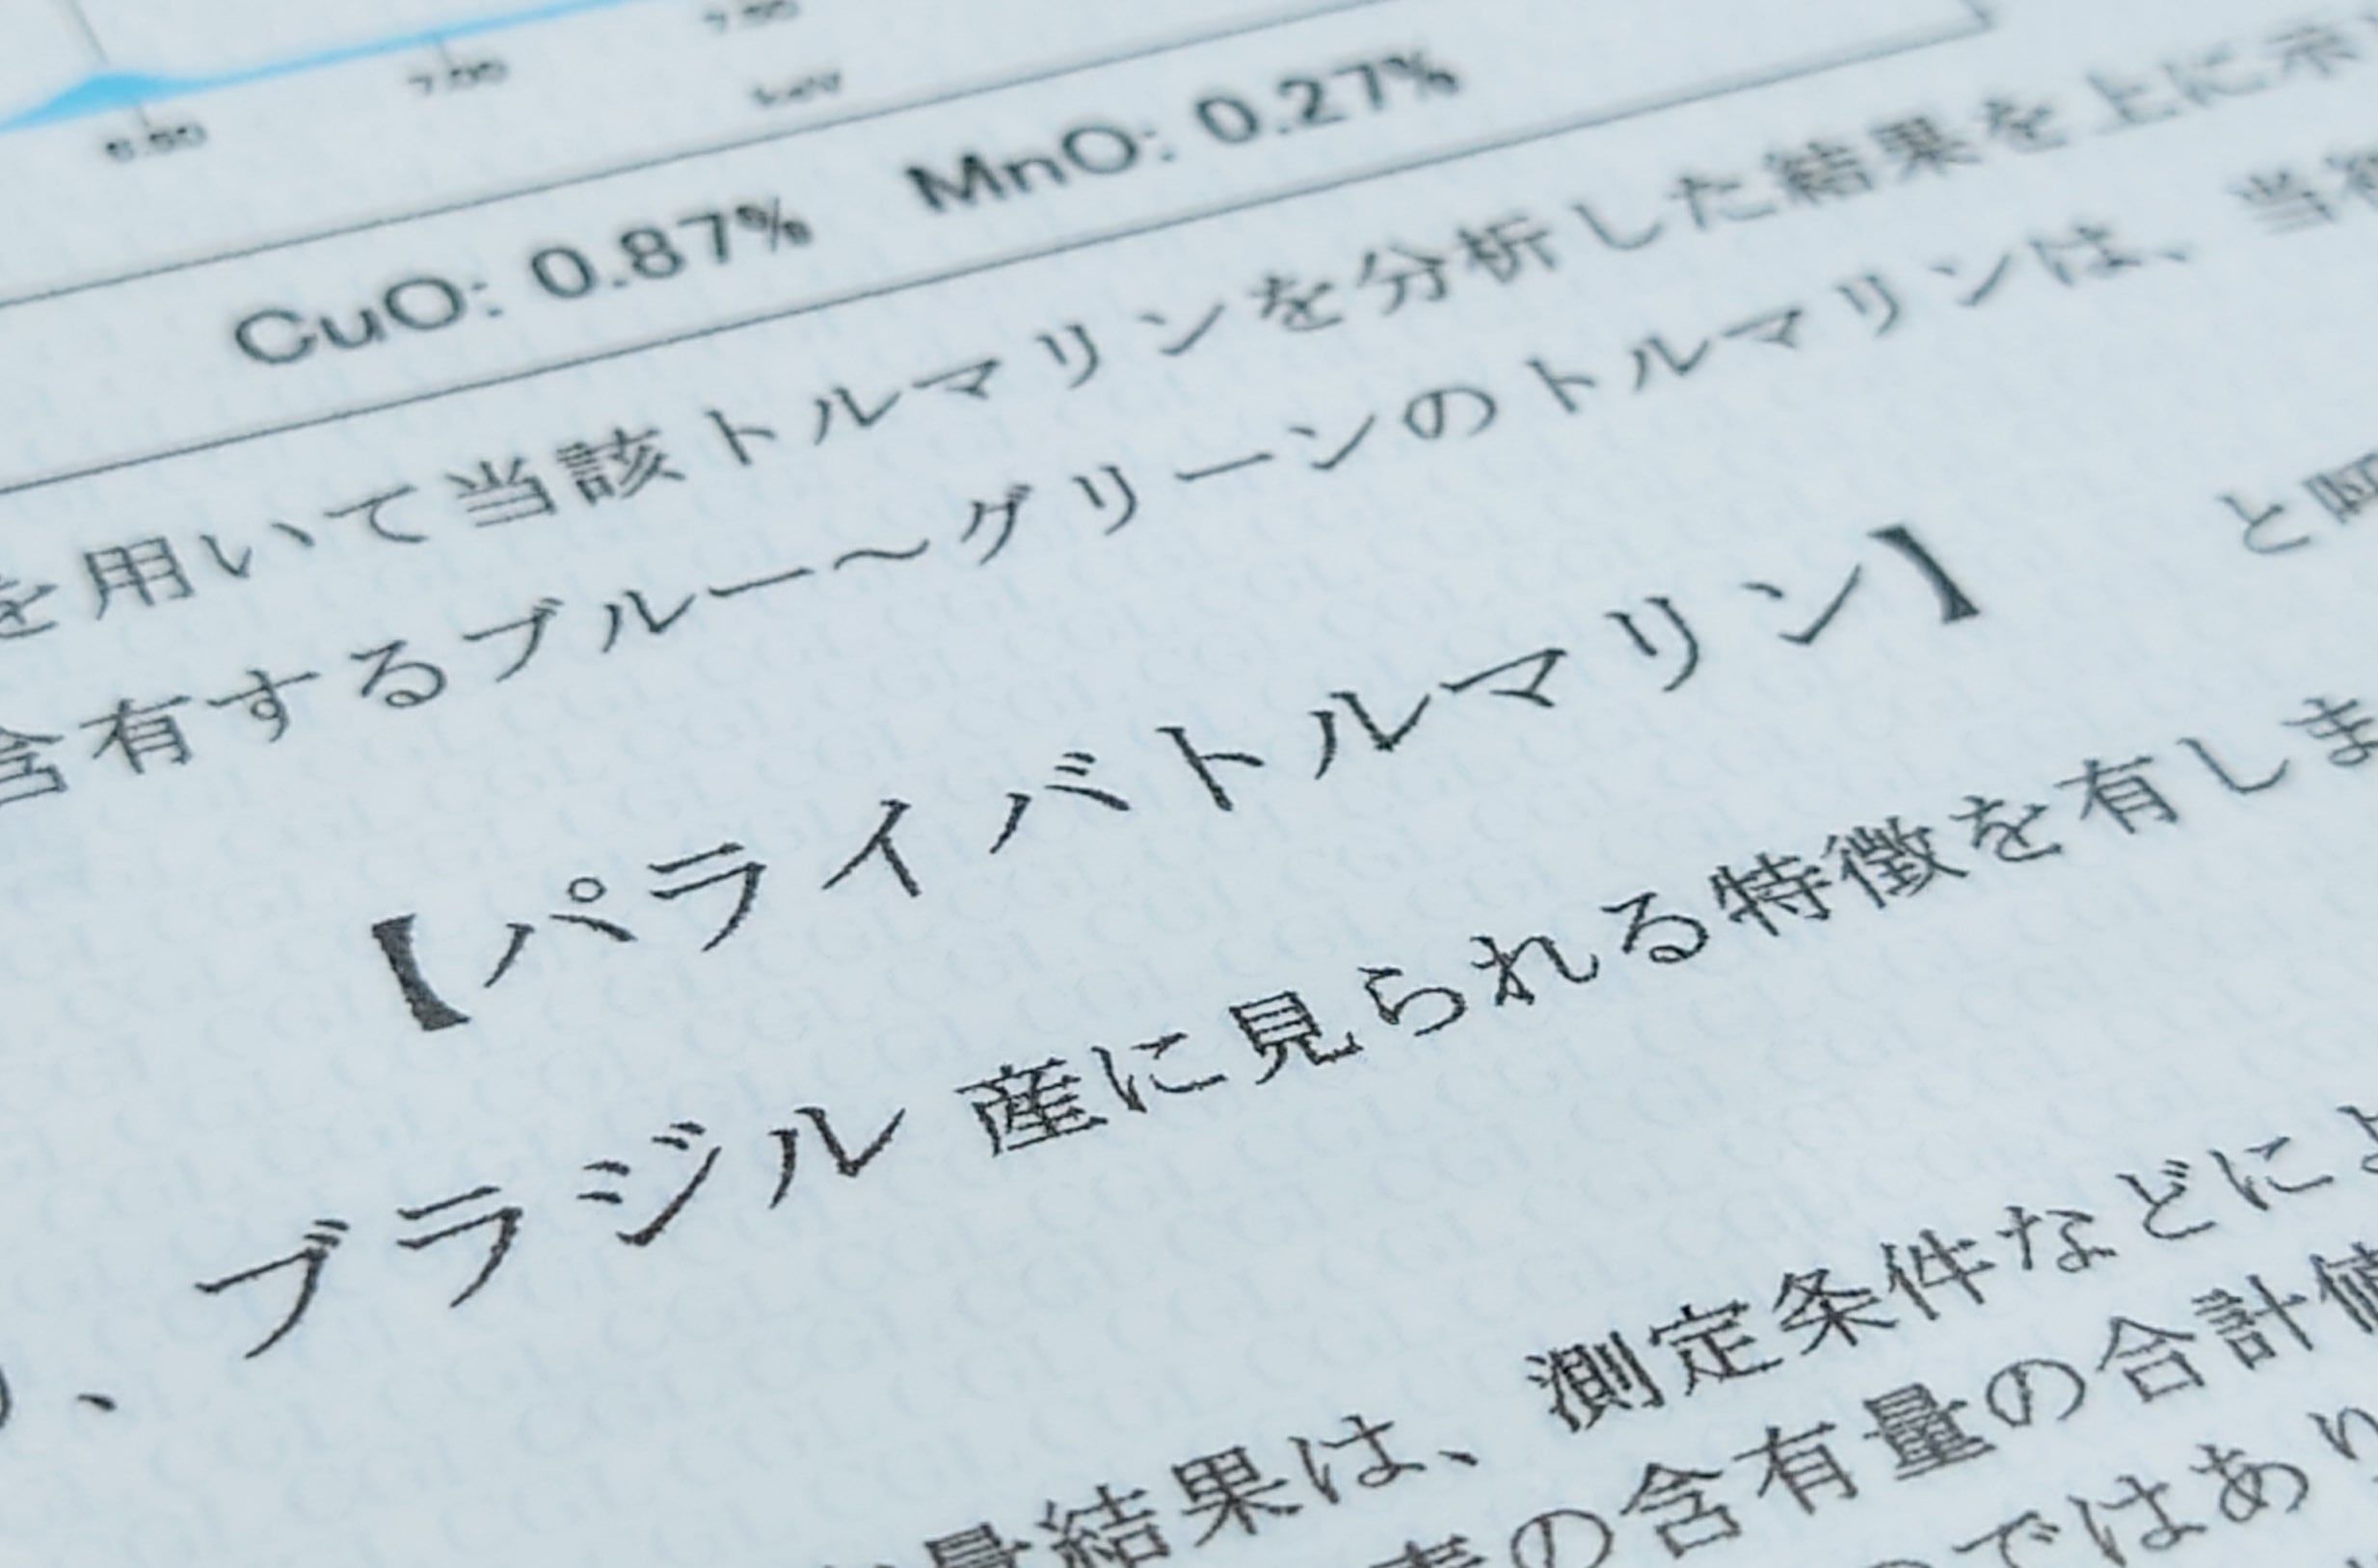 7.50
6.50 7.00 keV
CuO: 0.87% MnO: 0.27%
を用いて当該トルマリンを分析した結果を上に示
含有するブルー～グリーンのトルマリンは、当
【パライバトルマリン】 と呼
、ブラジル 産に見られる特徴を有しま
量結果は、測定条件などによ
素の含有量の合計値
のではあり